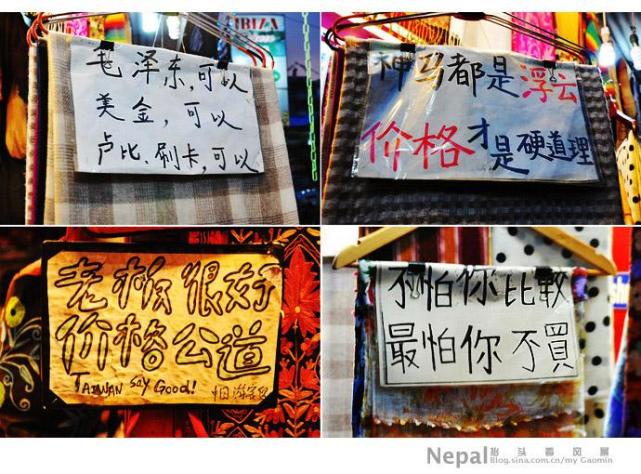 IBIZA
毛泽东,可以
美金,可以
卢比、刷卡,可以
神马都是浮云
价格才是硬道理
老板很好
价格公道
TAIWAN say Good!
不怕你比較
最怕你不買
Nepal 抬头看风景
Blog.sina.com.cn/my Gaomin